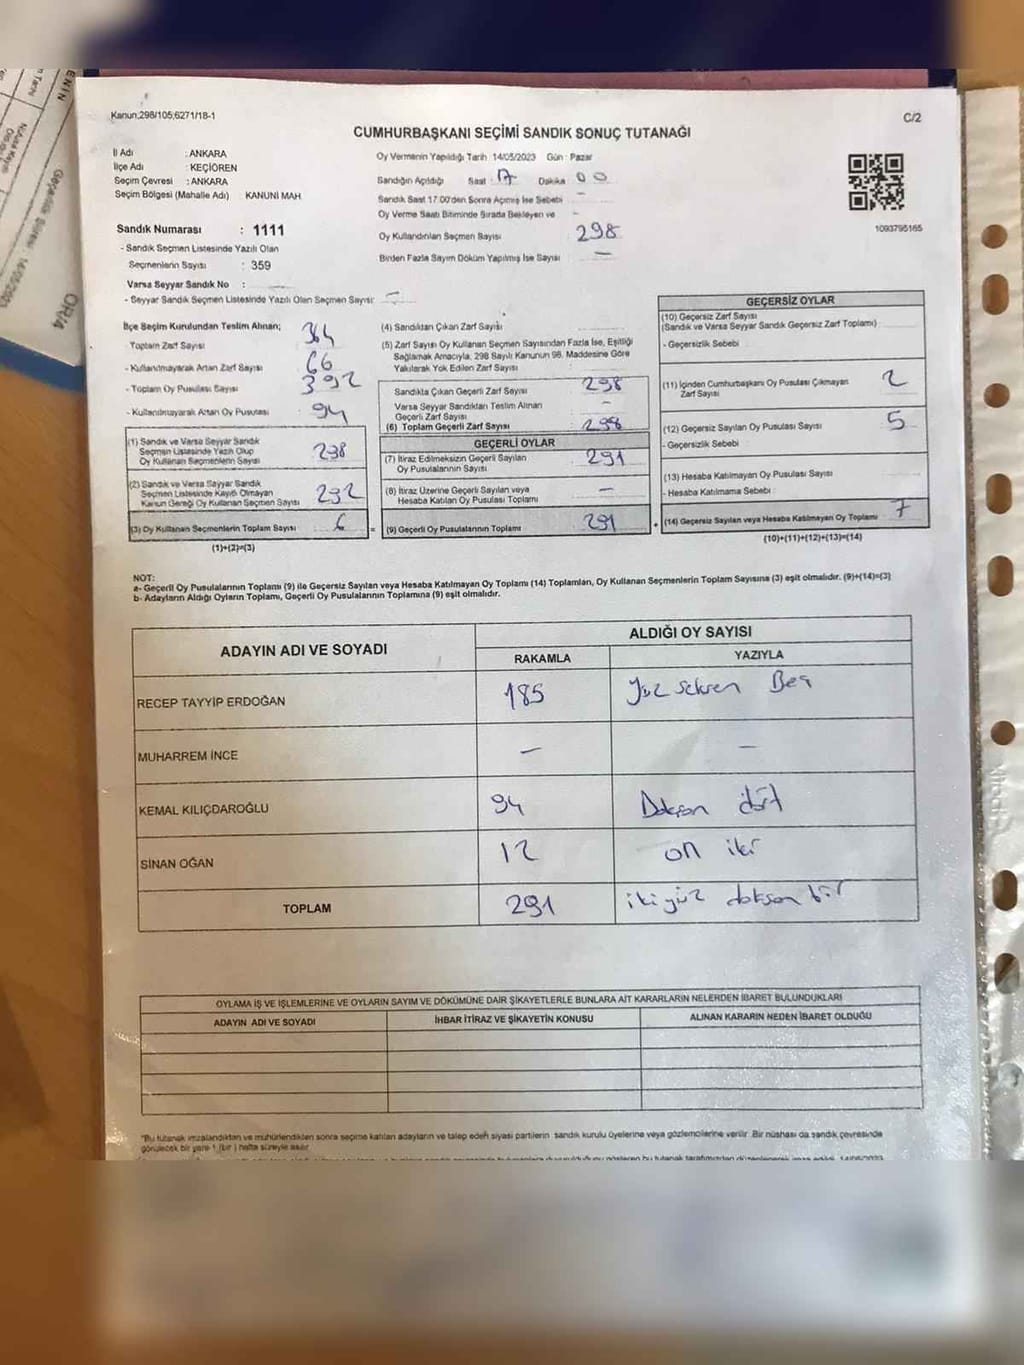 Kanun:298/105;6271/18-1
C/2
CUMHURBAŞKANI SEÇİMİ SANDIK SONUÇ TUTANAĞI
İl Adı : ANKARA
İlçe Adı : KEÇİÖREN
Seçim Çevresi : ANKARA
Seçim Bölgesi (Mahalle Adı) KANUNİ MAH
Sandık Numarası : 1111
- Sandık Seçmen Listesinde Yazılı Olan
Seçmenlerin Sayısı : 359
Varsa Seyyar Sandık No :
- Seyyar Sandık Seçmen Listesinde Yazılı Olan Seçmen Sayısı: -
Oy Vermenin Yapıldığı Tarih :14/05/2023 Gün : Pazar
Sandığın Açıldığı Saat : 17 Dakika 00
Sandık Saat 17:00'den Sonra Açılmış İse Sebebi -
Oy Verme Saati Bitiminde Sırada Bekleyen ve -
Oy Kullandırılan Seçmen Sayısı 298
Birden Fazla Sayım Döküm Yapılmış İse Sayısı -
1093795165
İlçe Seçim Kurulundan Teslim Alınan;
Toplam Zarf Sayısı 364
- Kullanılmayarak Artan Zarf Sayısı 66
- Toplam Oy Pusulası Sayısı 392
- Kullanılmayarak Artan Oy Pusulası 94
(1) Sandık ve Varsa Seyyar Sandık
Seçmen Listesinde Yazılı Olup
Oy Kullanan Seçmenlerin Sayısı 298
(2) Sandık ve Varsa Seyyar Sandık
Seçmen Listesinde Kayıtlı Olmayan
Kanun Gereği Oy Kullanan Seçmen Sayısı 292
(3) Oy Kullanan Seçmenlerin Toplam Sayısı 6 =
(1)+(2)=(3)
(4) Sandıktan Çıkan Zarf Sayısı
(5) Zarf Sayısı Oy Kullanan Seçmen Sayısından Fazla İse, Eşitliği
Sağlamak Amacıyla, 298 Sayılı Kanunun 98. Maddesine Göre
Yakılarak Yok Edilen Zarf Sayısı
Sandıkta Çıkan Geçerli Zarf Sayısı 298
Varsa Seyyar Sandıktan Teslim Alınan
Geçerli Zarf Sayısı -
(6) Toplam Geçerli Zarf Sayısı 298
GEÇERLİ OYLAR
(7) İtiraz Edilmeksizin Geçerli Sayılan
Oy Pusulalarının Sayısı 291
(8) İtiraz Üzerine Geçerli Sayılan veya
Hesaba Katılan Oy Pusulası Toplamı -
(9) Geçerli Oy Pusulalarının Toplamı 291 +
GEÇERSİZ OYLAR
(10) Geçersiz Zarf Sayısı
(Sandık ve Varsa Seyyar Sandık Geçersiz Zarf Toplamı)
- Geçersizlik Sebebi
(11) İçinden Cumhurbaşkanı Oy Pusulası Çıkmayan
Zarf Sayısı 2
(12) Geçersiz Sayılan Oy Pusulası Sayısı 5
- Geçersizlik Sebebi
(13) Hesaba Katılmayan Oy Pusulası Sayısı
- Hesaba Katılmama Sebebi
(14) Geçersiz Sayılan veya Hesaba Katılmayan Oy Toplamı 7
(10)+(11)+(12)+(13)=(14)
NOT:
a- Geçerli Oy Pusulalarının Toplamı (9) ile Geçersiz Sayılan veya Hesaba Katılmayan Oy Toplamı (14) Toplamları, Oy Kullanan Seçmenlerin Toplam Sayısına (3) eşit olmalıdır. (9)+(14)=(3)
b- Adayların Aldığı Oyların Toplamı, Geçerli Oy Pusulalarının Toplamına (9) eşit olmalıdır.
ADAYIN ADI VE SOYADI
ALDIĞI OY SAYISI
RAKAMLA YAZIYLA
RECEP TAYYİP ERDOĞAN 185 Yüz seksen Beş
MUHARREM İNCE - -
KEMAL KILIÇDAROĞLU 94 Doksan dört
SİNAN OĞAN 12 on iki
TOPLAM 291 ikiyüz doksan bir
OYLAMA İŞ VE İŞLEMLERİNE VE OYLARIN SAYIM VE DÖKÜMÜNE DAİR ŞİKAYETLERLE BUNLARA AİT KARARLARIN NELERDEN İBARET BULUNDUKLARI
ADAYIN ADI VE SOYADI İHBAR İTİRAZ VE ŞİKAYETİN KONUSU ALINAN KARARIN NEDEN İBARET OLDUĞU
"Bu tutanak imzalandıktan ve mühürlendikten sonra seçime katılan adayların ve talep eden siyasi partilerin sandık kurulu üyelerine veya gözlemcilerine verilir. Bir nüshası da sandık çevresinde
görülecek bir yere 1 (bir) hafta süreyle asılır.